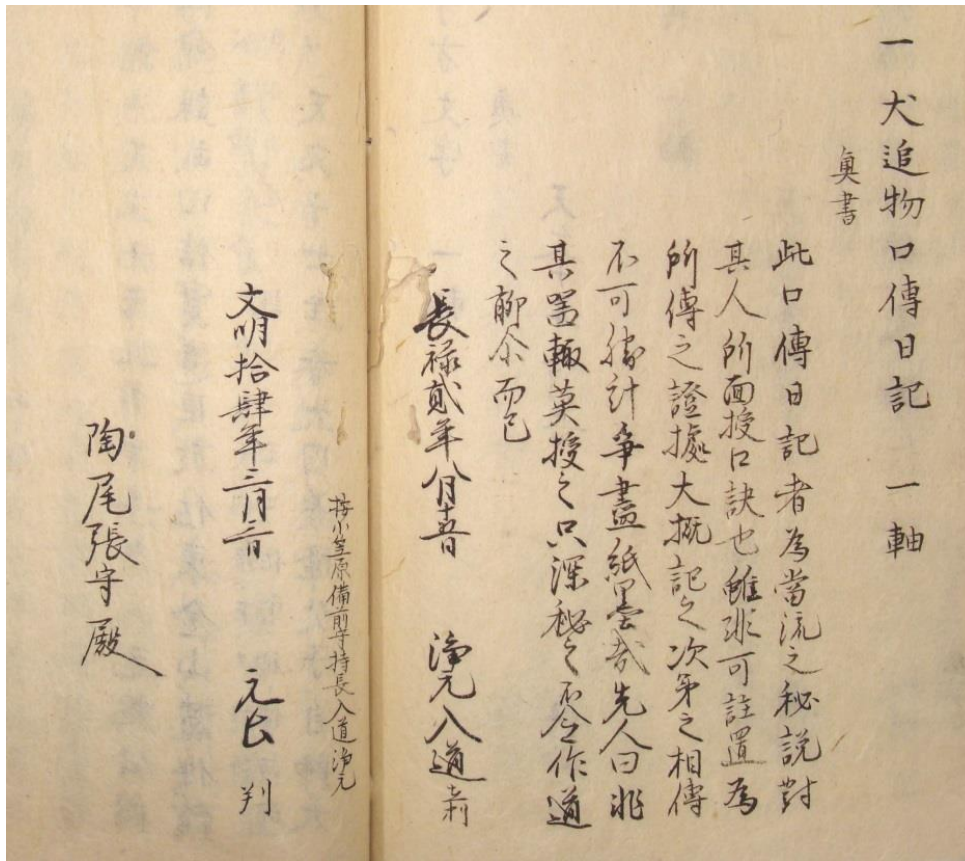 一犬追物口傳日記　一軸
奥書
此口傳日記者為當流之秘説對
其人所面授口訣也雖非可註置為
所傳之證據大概記之次第之相傳
不可勝計争盡紙墨哉先人曰非
其器輙莫授之只深秘之不令作道
之聊尒而已
長禄貳年八月十五日　浄元入道
按小笠原備前守持長入道浄元
文明拾肆年三月二日　元長　判
陶尾張守殿